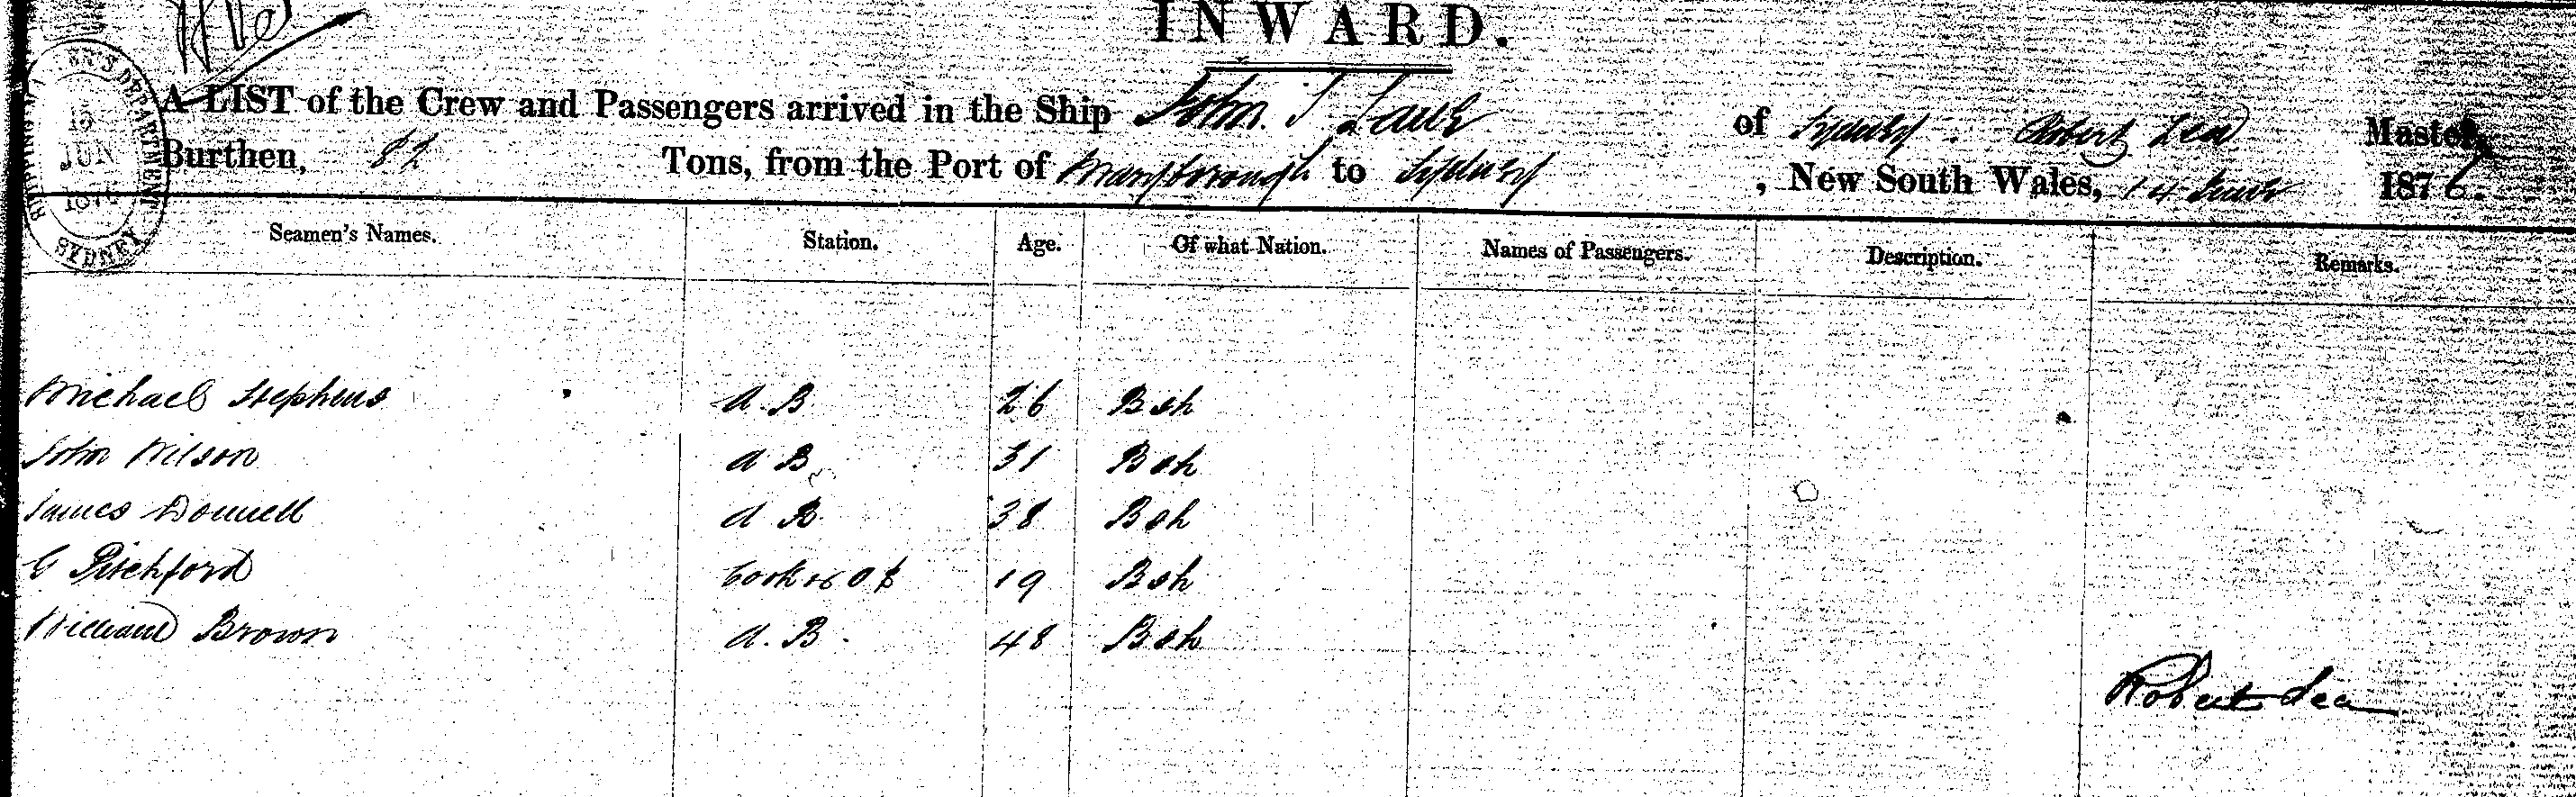 INWARD.
A LIST of the Crew and Passengers arrived in the Ship John S Lane of Sydney. Robert Lea Master,
Burthen, 82 Tons, from the Port of Maryborough to Sydney, New South Wales, 14 June 1876.
SHIPPING MASTER'S DEPARTMENT
15
JUN
1876
SYDNEY
Seamen's Names. Station. Age. Of what Nation. Names of Passengers. Description. Remarks.
Michael Stephens A.B 26 Bsh
John Wilson A B 31 Bsh
James Donnell A B 38 Bsh
G Pitchford Cook & O S 19 Bsh
William Brown A.B. 48 Bsh
Robert Lea